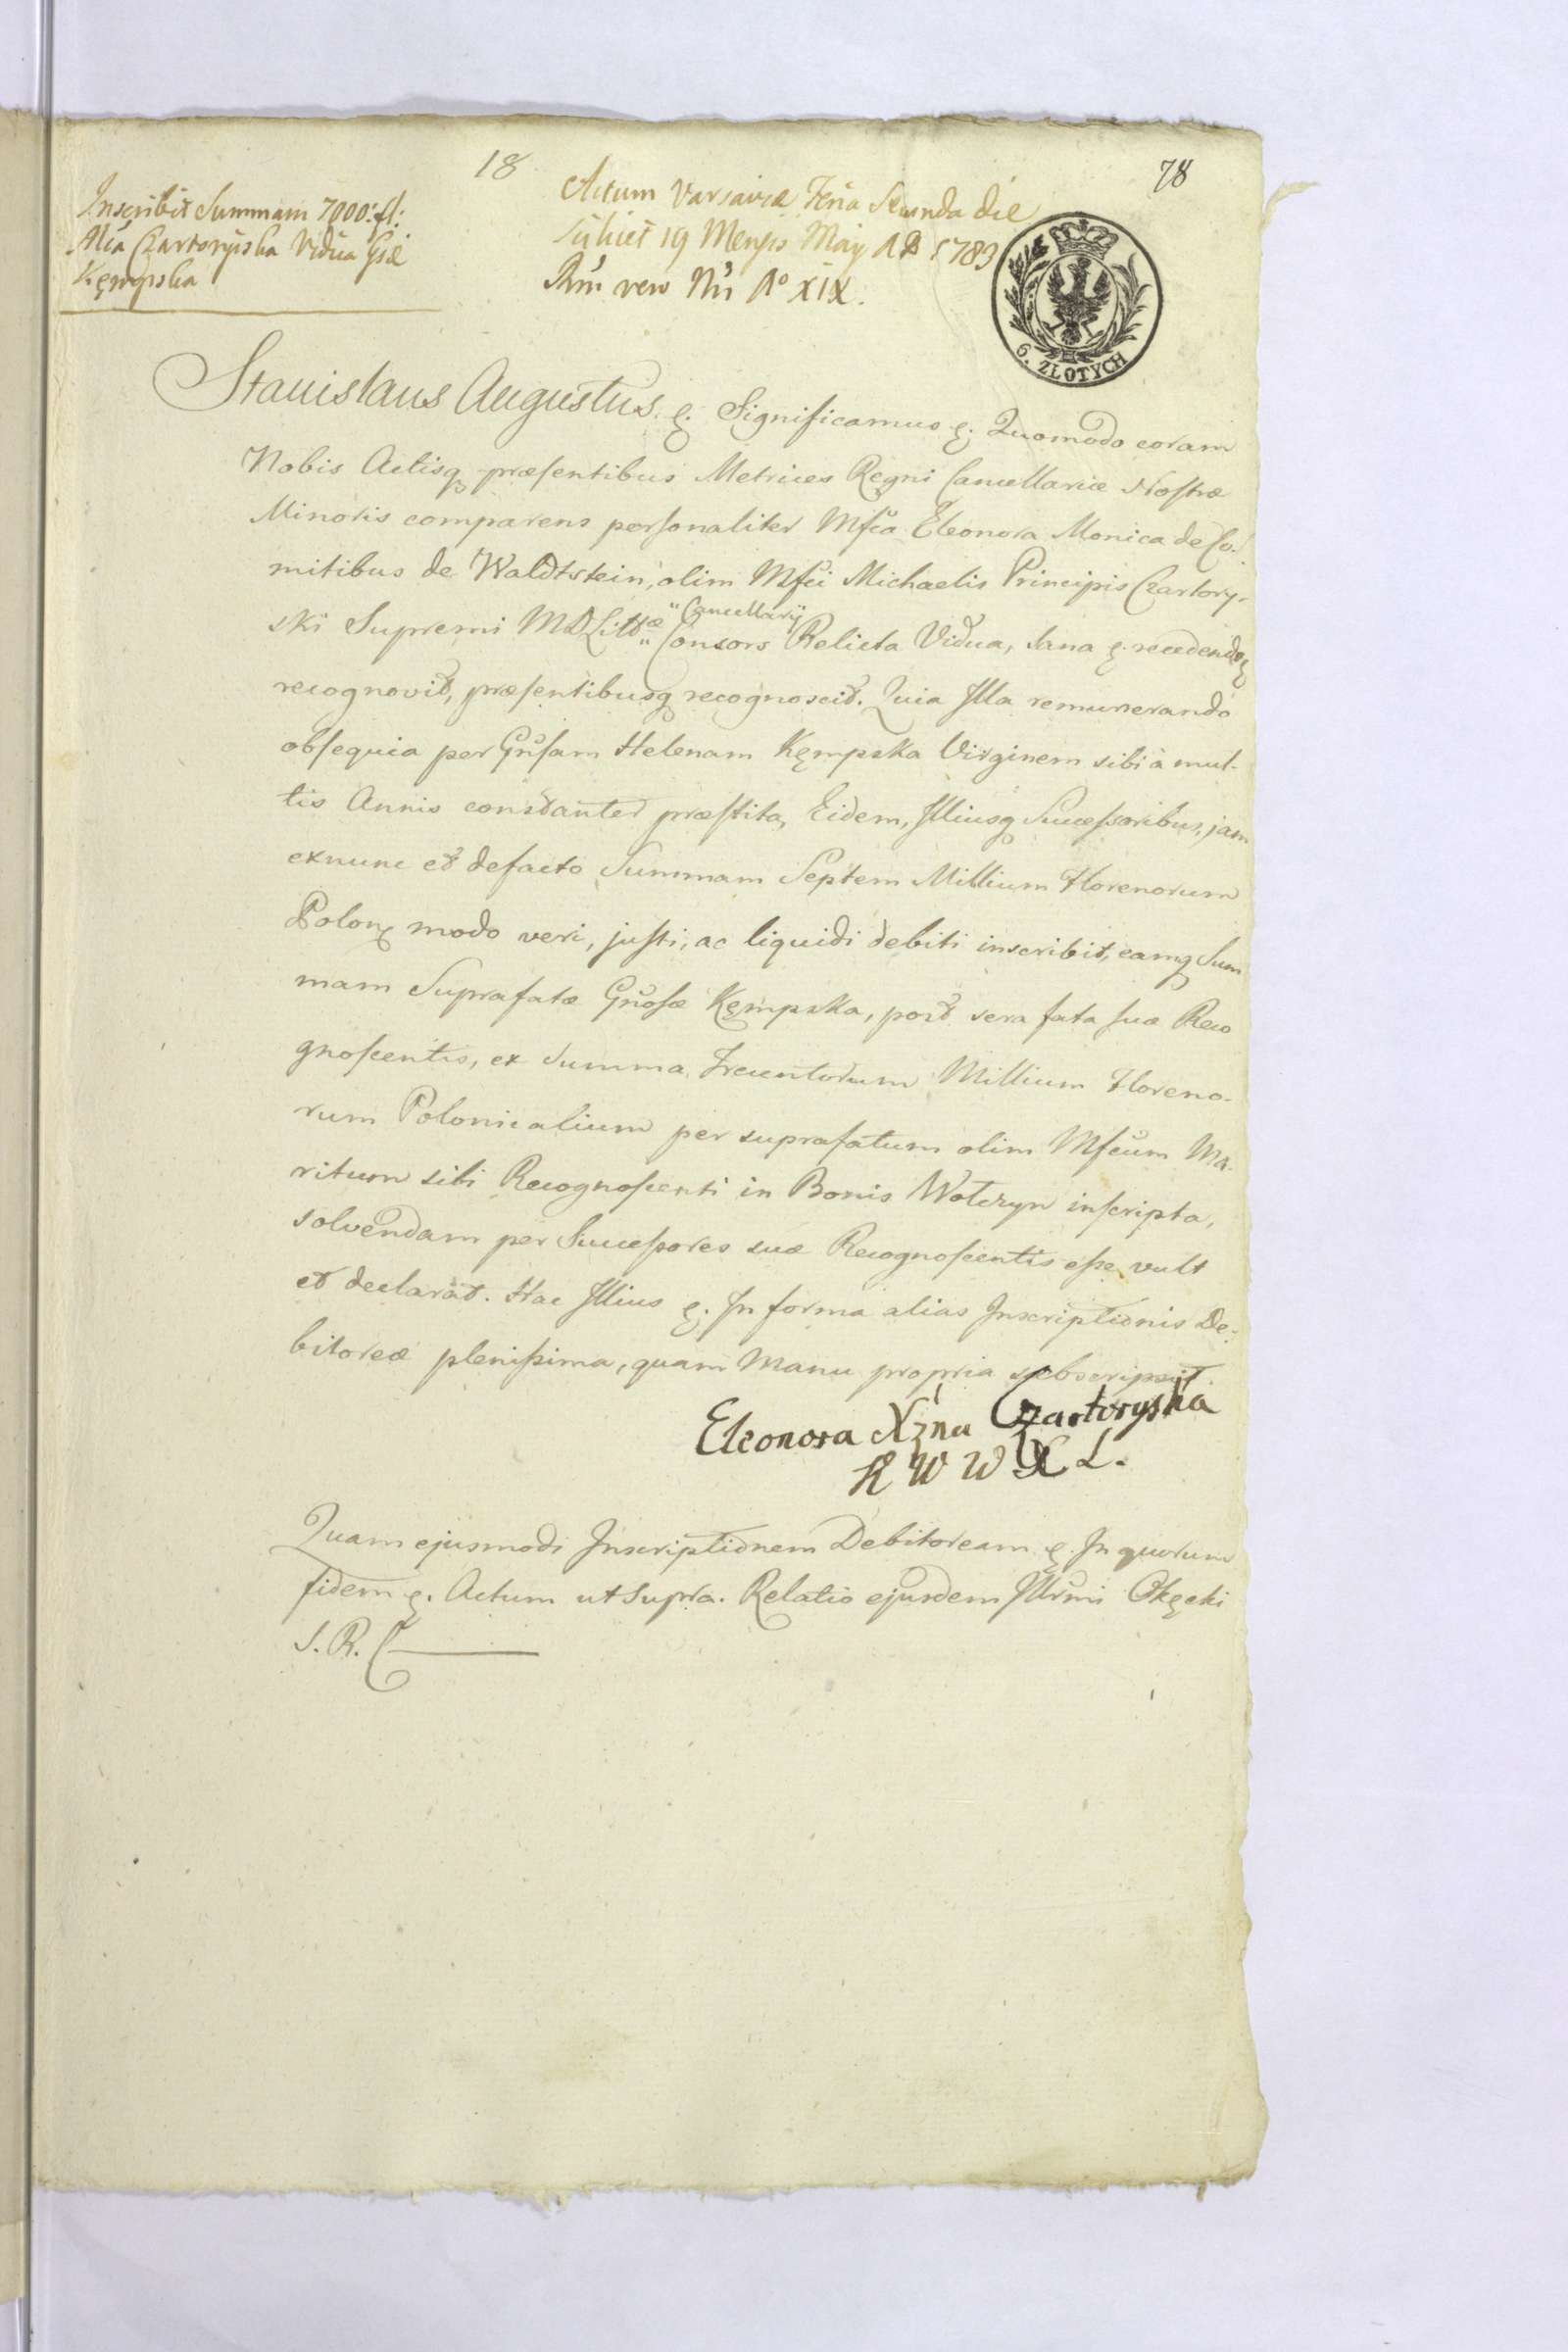 18
78
Inscribit Summam 7000: fl:
Mca Czartoryska Vidua Gsæ
Kęmpska
Actum Varsaviæ Feria Secunda die
scilicet 19 Mensis May AD 1783
Rni vero Nri Aº XIX.
6. ZŁOTYCH
Stanislaus Augustus ę. Significamus ę. Quomodo coram
Nobis Actisq præsentibus Metrices Regni Cancellariæ Nostræ
Minoris comparens personaliter Mfca Eleonora Monica de Co-
mitibus de Waldtstein, olim Mfci Michaelis Principis Czartory-
ski Supremi MDLittæ "Cancellarij" Consors Relicta Vidua, sana ę. recedendoq
recognovit, præsentibusq recognoscit. Quia Illa remunerando
obsequia per Gnsam Helenam Kęmpska Virginem sibi à mul-
tis Annis constanter præstita, Eidem, Illiusq Successoribus, jam
exnunc et defacto Summam Septem Millium Florenorum
Polonę modo veri, justi, ac liquidi debiti inscribit, eamq Sum
mam Suprafatæ Gnosæ Kęmpska, post sera fata suæ Reco
gnoscentis, ex Summa Trecentorum Millium Floreno-
rum Polonicalium per suprafatum olim Mfcum Ma-
ritum sibi Recognoscenti in Bonis Wołczyn inscripta,
solvendam per Successores suæ Recognoscentis esse vult
et declarat. Hac Illius ę. In forma alias Inscriptionis De-
bitoreæ plenissima, quam Manu propria subscripsit.
Eleonora Xżna Czartoryska
K W W X L.
Quam ejusmodi Inscriptionem Debitoream ę. In quorum
fidem ę. Actum ut Supra. Relatio ejusdem Illrmi Okęcki
S. R. C